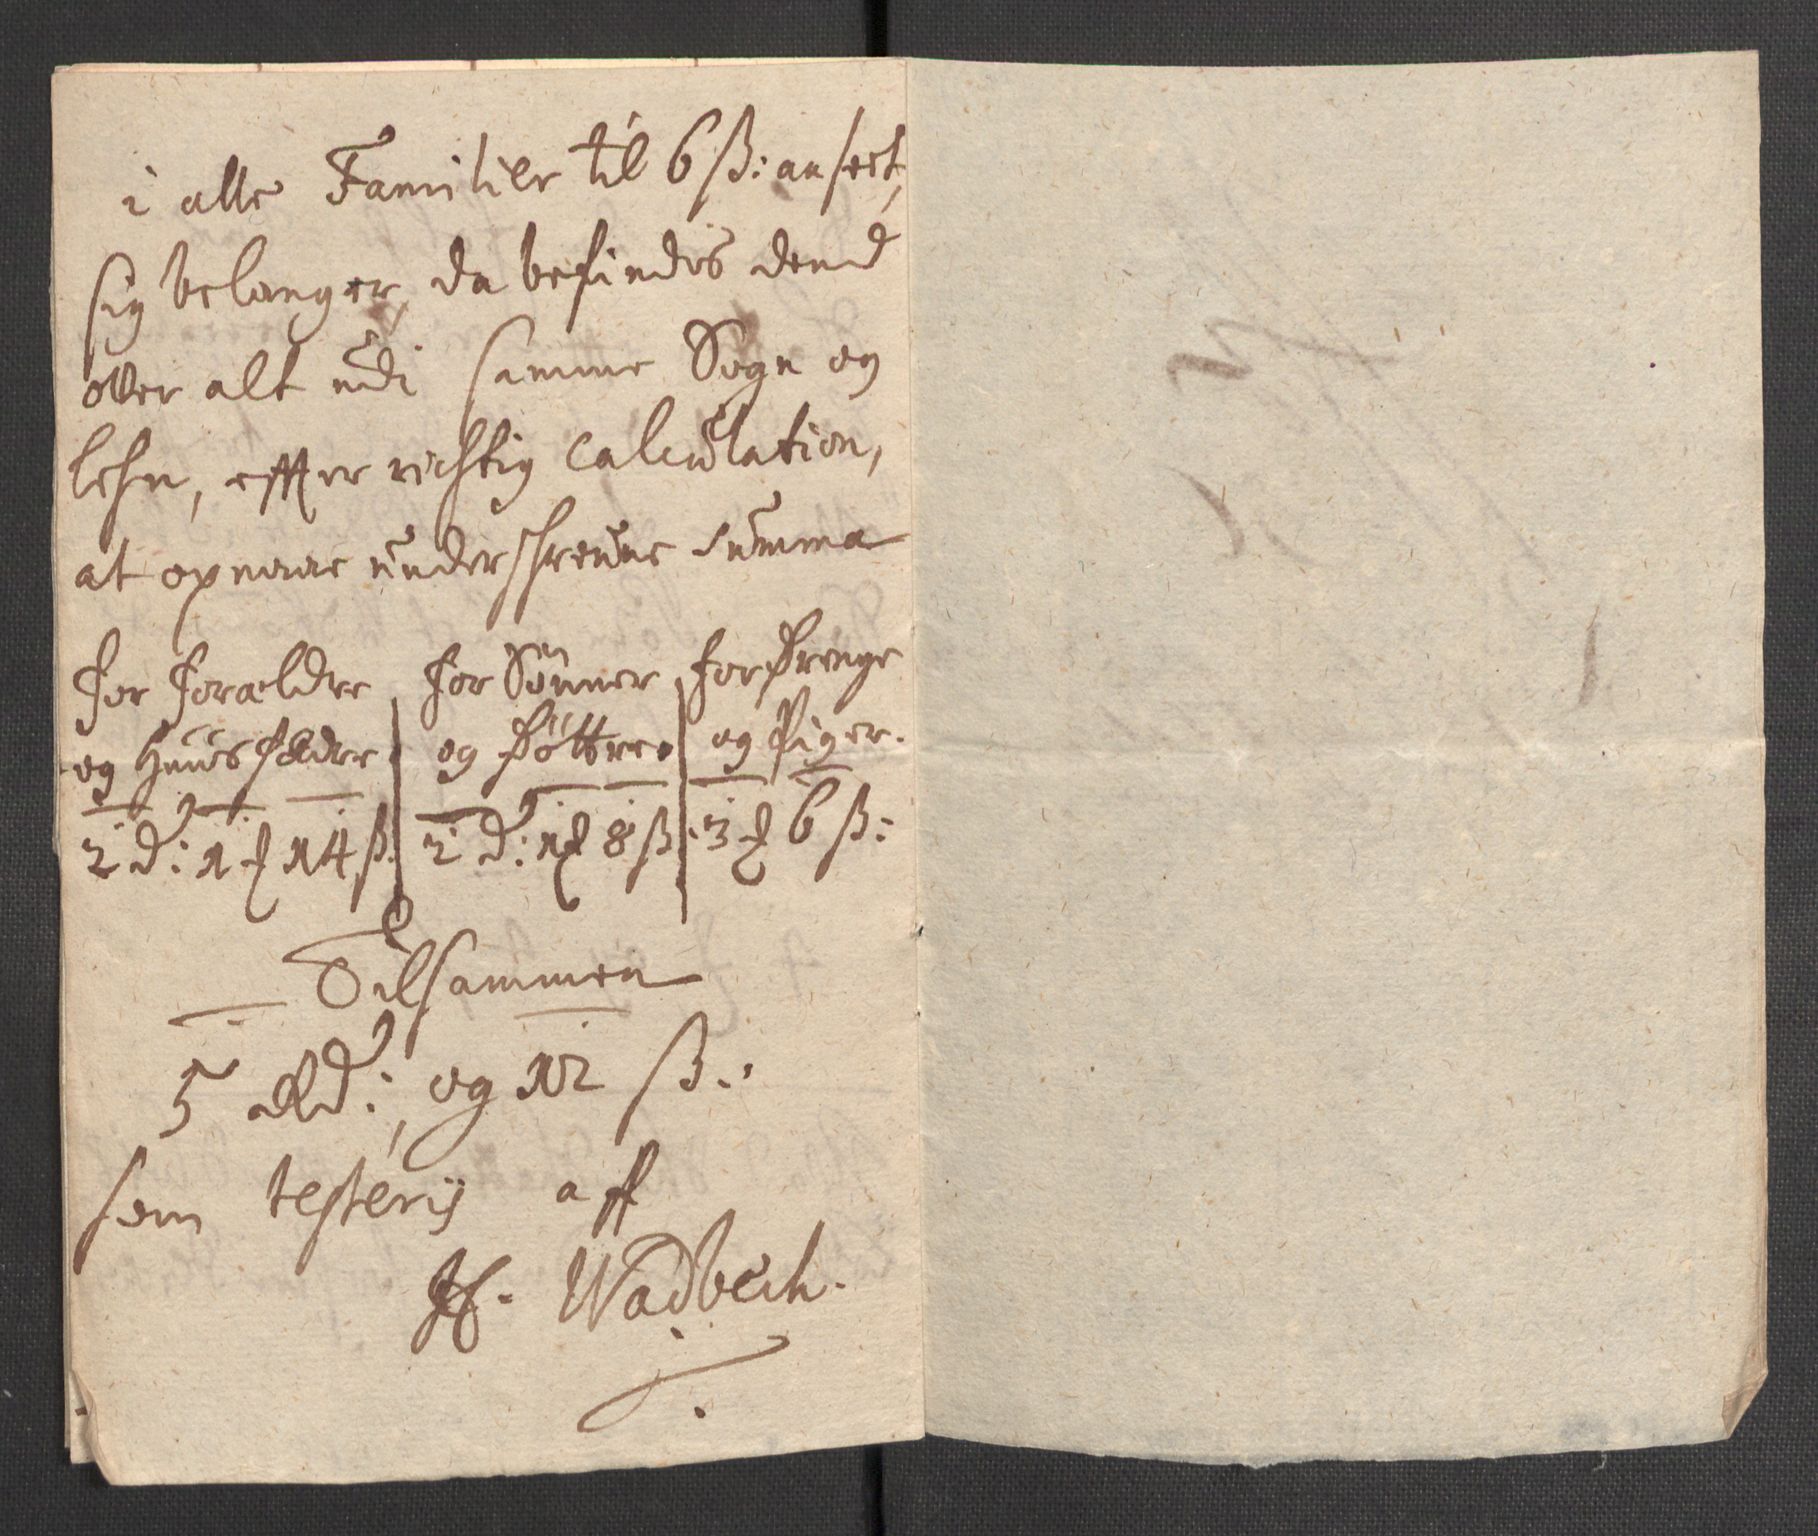 i alle Familier til 6 ß: ansect,
sig belanger, da befindes dend
ofver alt udi samme Sogn og
lehn, effter richtig Calculation,
at opnaae underschrefne summa
for foræ​ldre | for Sönner | for Drenge
og Huusfædre | og Döttre | og Piger.
2 d: 1 ₰ 14 ß: | 2 d: 1 ₰ 8 ß: | 3 ₰ 6 ß:
Tilsammen
5 Rd:, og 12 ß:
som testerij aff
H. Wadbech.